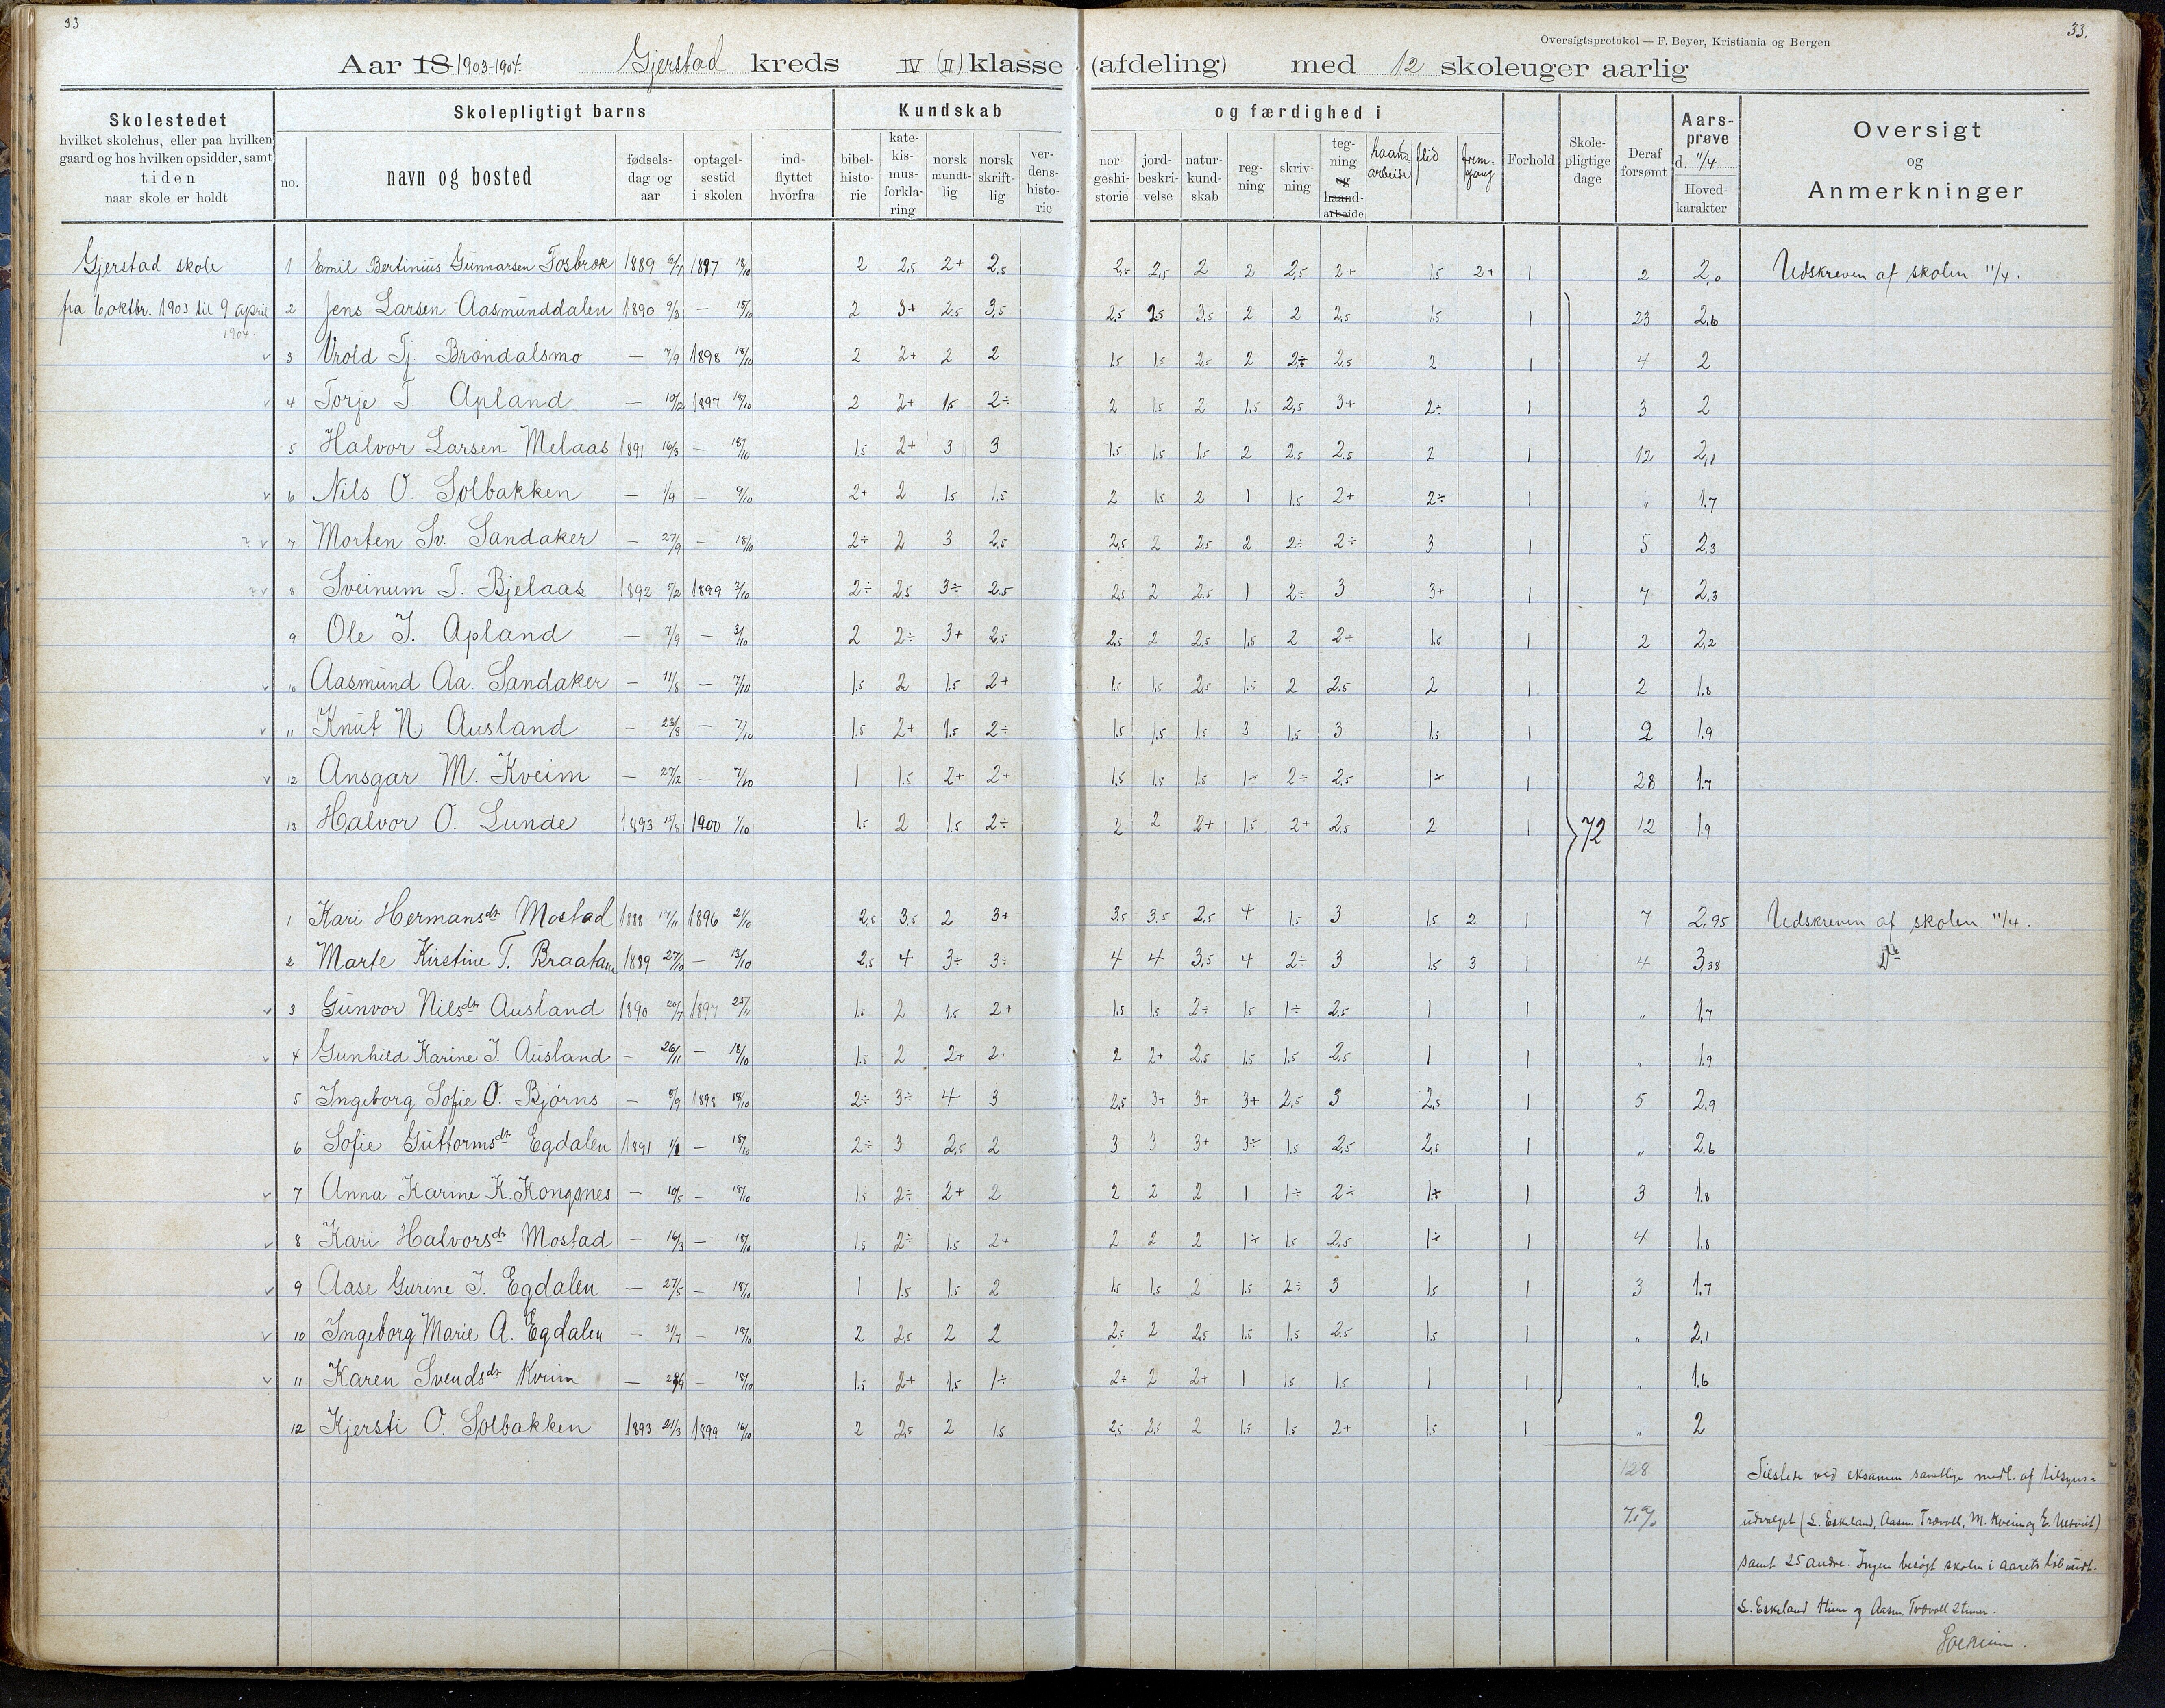 33
33.
Oversigtsprotokol — F. Beyer, Kristiania og Bergen
Aar 18 1903-1904. Gjerstad kreds IV (II) klasse (afdeling) med 12 skoleuger aarlig
Skolestedet
hvilket skolehus, eller paa hvilken
gaard og hos hvilken opsidder, samt
tiden
naar skole er holdt
Skolepligtigt barns
no.
navn og bosted
fødsels-
dag og
aar
optagel-
sestid
i skolen
ind-
flyttet
hvorfra
Kundskab
bibel-
histo-
rie
kate-
kis-
mus-
forkla-
ring
norsk
mundt-
lig
norsk
skrift-
lig
ver-
dens-
histo-
rie
og færdighed i
nor-
geshi-
storie
jord-
beskri-
velse
natur-
kund-
skab
reg-
ning
skriv-
ning
teg-
ning
og
haand-
arbeide
haand
arbeide
flid
frem-
gang
Forhold
Skole-
pligtige
dage
Deraf
forsømt
Aars-
prøve
d. 11/4
Hoved-
karakter
Oversigt
og
Anmerkninger
Gjerstad skole
fra 6 oktbr. 1903 til 9 april
1904.
1 Emil Bertinius Gunnarsen Fosbrok 1889 6/7 1897 18/10 2 2,5 2+ 2,5 2,5 2,5 2 2 2,5 2+ 1,5 2+ 1 2 2,0 Udskreven af skolen 11/4.
2 Jens Larsen Aasmunddalen 1890 9/3 — 18/10 2 3+ 2,5 3,5 2,5 2,5 3,5 2 2 2,5 1,5 1 23 2,6
3 Vrold Tj. Brøndalsmo — 7/9 1898 18/10 2 2+ 2 2 1,5 1,5 2,5 2 2÷ 2,5 2 1 4 2
4 Torje T. Apland — 10/2 1897 18/10 2 2+ 1,5 2÷ 2 1,5 2 1,5 2,5 3+ 2÷ 1 3 2
5 Halvor Larsen Melaas 1891 16/3 — 18/10 1,5 2+ 3 3 1,5 1,5 1,5 2 2,5 2,5 2 1 12 2,1
6 Nils O. Solbakken — 1/9 — 9/10 2+ 2 1,5 1,5 2 1,5 2 1 1,5 2+ 2÷ 1 " 1,7
7 Morten Sv. Sandaker — 27/9 — 18/10 2÷ 2 3 2,5 2,5 2 2,5 2 2÷ 2÷ 3 1 5 2,3
8 Sveinum T. Bjelaas 1892 5/2 1899 3/10 2÷ 2,5 3÷ 2,5 2,5 2 2,5 1 2÷ 3 3+ 1 7 2,3
9 Ole J. Apland — 7/9 — 3/10 2 2÷ 3+ 2,5 2,5 2 2,5 1,5 2 2÷ 1,5 1 2 2,2
10 Aasmund Aa. Sandaker — 11/8 — 7/10 1,5 2 1,5 2+ 1,5 1,5 2,5 1,5 2 2,5 2 1 2 1,8
11 Knut N. Ausland — 23/8 — 7/10 1,5 2+ 1,5 2÷ 1,5 1,5 1,5 3 1,5 3 1,5 1 2 1,9
12 Ansgar M. Kveim — 27/2 — 7/10 1 1,5 2+ 2+ 1,5 1,5 1,5 1÷ 2÷ 2,5 1÷ 1 28 1,7
13 Halvor O. Lunde 1893 15/8 1900 1/10 1,5 2 1,5 2÷ 2 2 2+ 1,5 2+ 2,5 2 1 72 12 1,9
1 Kari Hermansdtr Mostad 1888 17/11 1896 21/10 2,5 3,5 2 3+ 3,5 3,5 2,5 4 1,5 3 1,5 2 1 7 2,95 Udskreven af skolen 11/4.
2 Marte Kirstine T. Braatane 1889 27/10 — 13/10 2,5 4 3÷ 3÷ 4 4 3,5 4 2÷ 3 1,5 3 1 4 3,38 Do
3 Gunvor Nilsdtr Ausland 1890 20/7 1897 25/11 1,5 2 1,5 2+ 1,5 1,5 2÷ 1,5 1÷ 2,5 1 1 " 1,7
4 Gunhild Karine J. Ausland — 26/11 — 18/10 1,5 2 2+ 2+ 2 2+ 2,5 1,5 1,5 2,5 1 1 " 1,9
5 Ingeborg Sofie O. Bjørns — 8/9 1898 18/10 2÷ 3÷ 4 3 2,5 3+ 3+ 3+ 2,5 3 2,5 1 5 2,9
6 Sofie Guttormsdtr Egdalen 1891 — 18/10 2÷ 3 2,5 2 3 3 3+ 3÷ 1,5 2,5 2,5 1 " 2,6
7 Anna Karine K. Kongsnes — 10/5 — 18/10 1,5 2÷ 2+ 2 2 2 2 1 1÷ 2÷ 1÷ 1 3 1,8
8 Kari Halvorsdtr Mostad — 16/3 — 18/10 1,5 2÷ 1,5 2+ 2 2 2 1÷ 1,5 2,5 1÷ 1 4 1,8
9 Aase Gurine J. Egdalen — 27/5 — 18/10 1 1,5 1,5 2 1,5 1,5 2 1,5 2÷ 3 1,5 1 3 1,7
10 Ingeborg Marie A. Egdalen — 31/7 — 18/10 2 2,5 2 2 2,5 2 2,5 1,5 1,5 2,5 1,5 1 " 2,1
11 Karen Svendsdtr Kveim — — 18/10 1,5 2+ 1,5 1÷ 2÷ 2 2+ 1 1,5 1,5 1 1 " 1,6
12 Kjersti O. Solbakken 1893 21/3 1899 16/10 2 2,5 2 1,5 2,5 2,5 2 1,5 1,5 2+ 1,5 1 " 2
128
Tilstede ved eksamen samtlige medl. af tilsyns-
udvalget (L. Eskeland, Aasm. Trævoll, M. Kveim og E. Ulsvik)
samt 25 andre. Ingen besøgt skolen i aarets løb undt.
L. Eskeland og Aasm. Trævoll 2 timer.